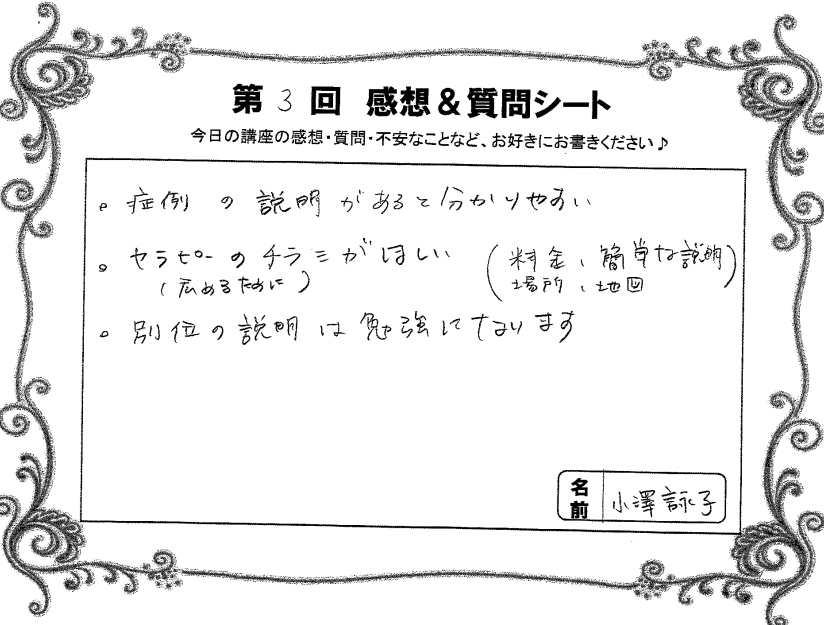 第3回 感想&質問シート
今日の講座の感想・質問・不安なことなど、お好きにお書きください♪
。症例の説明があると分かりやすい
。セラピーのチラシがほしい (料金、簡単な説明
(広めるために) 場所、地図)
。別位の説明は勉強になります
名前 小澤詠子